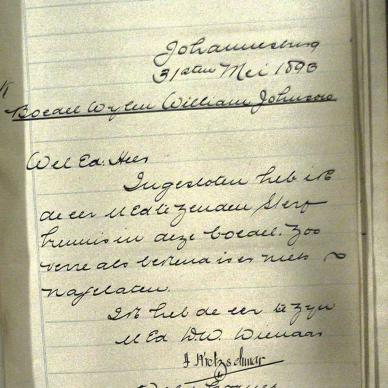 Johannesburg
31sten Mei 1893
Boedel Wylen William Johnson
Wel Ed. Heer
Ingesloten heb ik
de eer U Ed te zenden Sterf
kennis in deze boedel. Zoo
verre als bekend is er niets
nagelaten.
Ik heb de eer te zyn
U Ed D.W. Dienaar